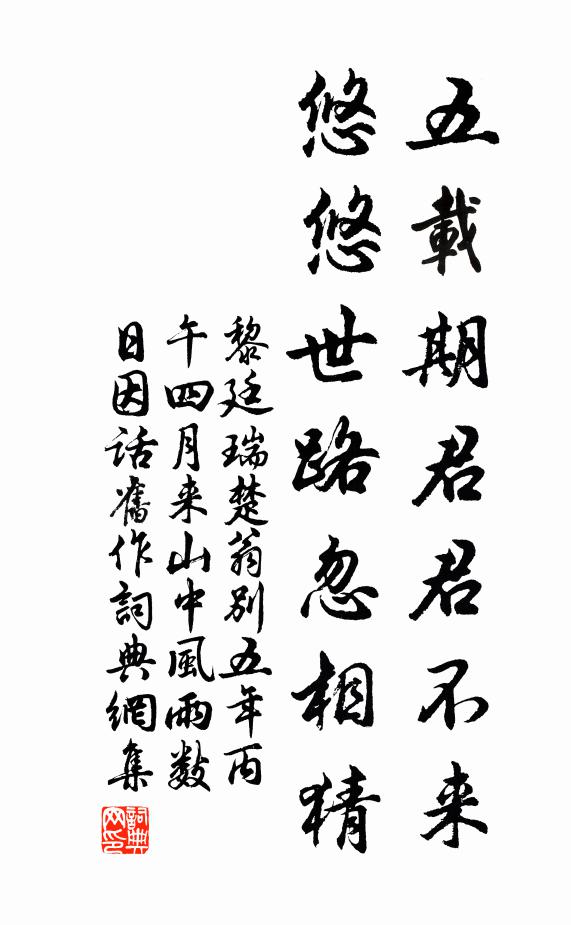 五載期君君不来
悠悠世路忽相猜
黎廷瑞楚翁别五年丙
午四月来山中風雨数
日因话舊作詞典網集
詞典网印